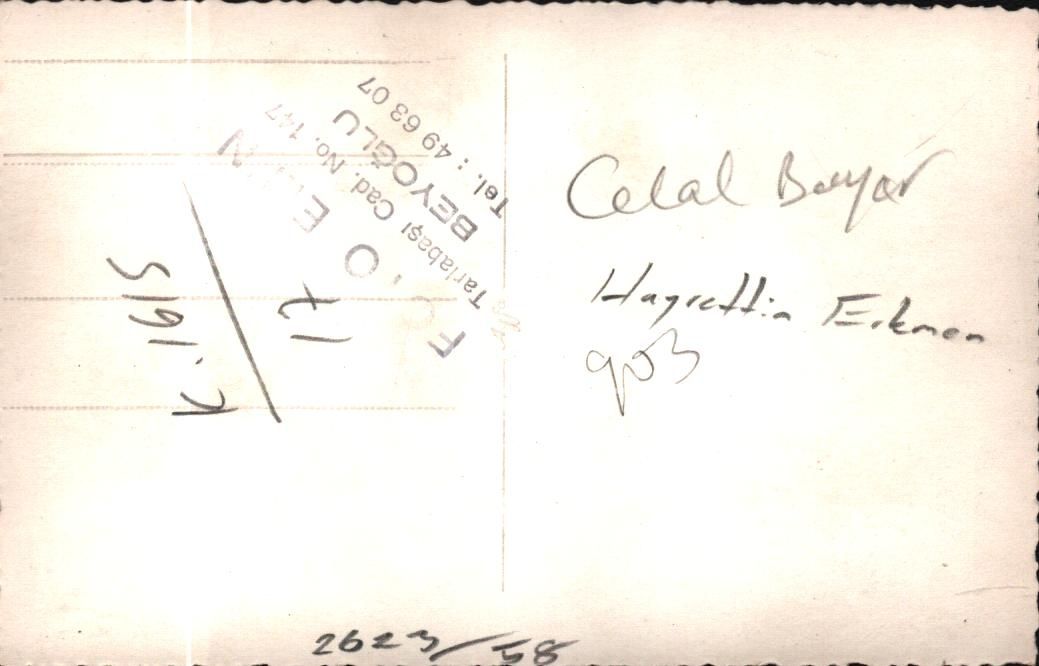 Celal Bayar
Hayrettin Erkmen
903
Tarlabaşı Cad. No. 147
BEYOĞLU
Tel.: 49 63 07
17
K. 1915
2623/58